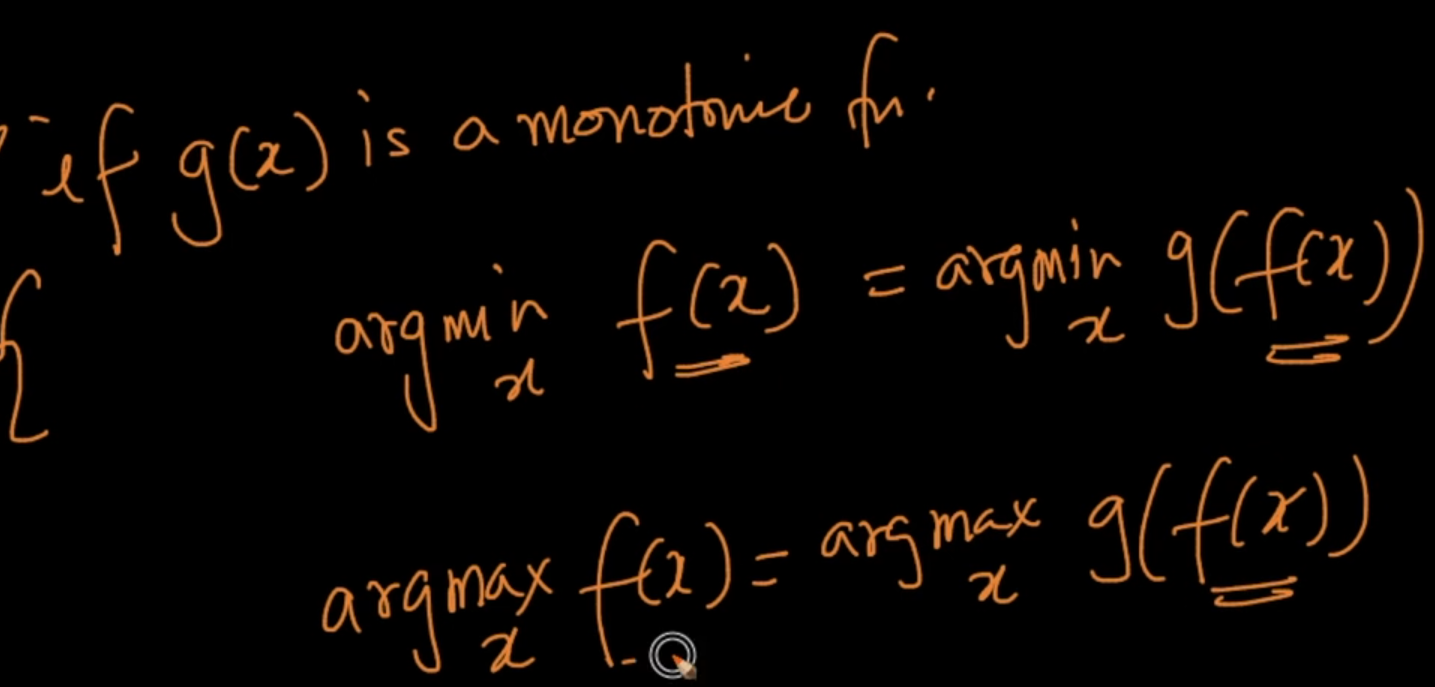 if g(x) is a monotonic fn.
argmin f(x) = argmin g(f(x))
x x
argmax f(x) = argmax g(f(x))
x x